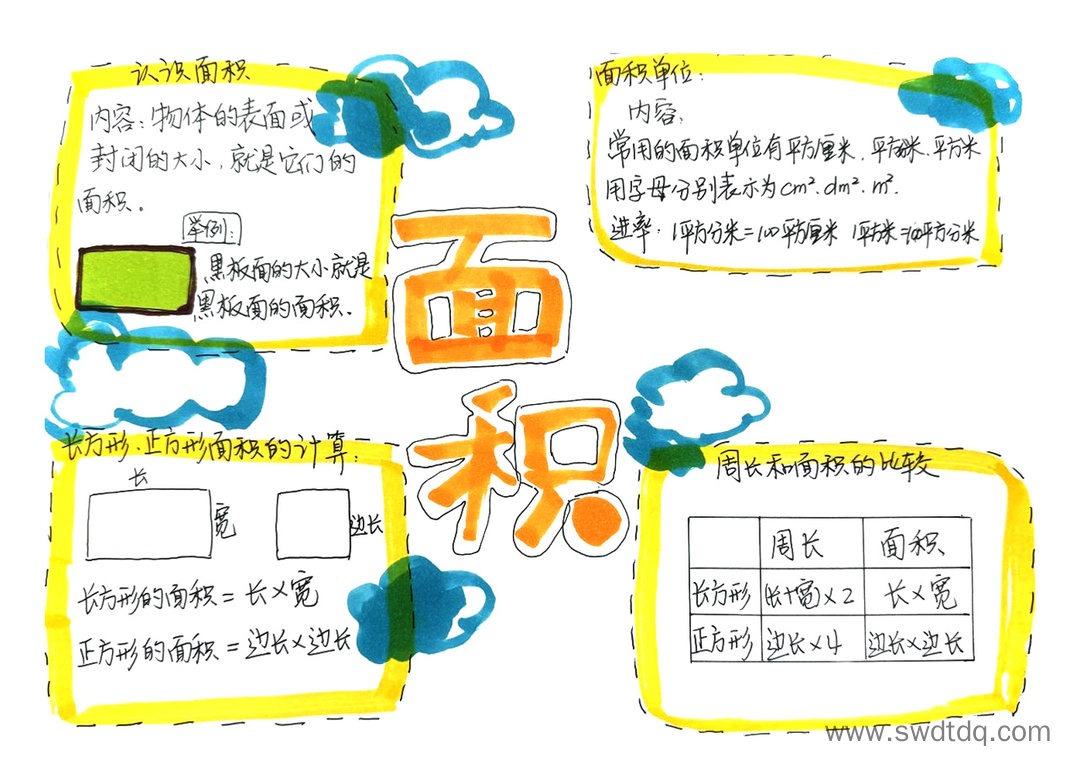 认识面积
内容:物体的表面或
封闭的大小,就是它们的
面积。
举例:
黑板面的大小就是
黑板面的面积.
面积单位:
内容:
常用的面积单位有平方厘米,平方分米、平方米
用字母分别表示为cm².dm².m².
进率:1平方分米=100平方厘米 1平方米=100平方分米
面
积
长方形.正方形面积的计算:
长
宽
边长
长方形的面积=长×宽
正方形的面积=边长×边长
周长和面积的比较
周长 面积
长方形 (长+宽)×2 长×宽
正方形 边长×4 边长×边长
www.swdtdq.com